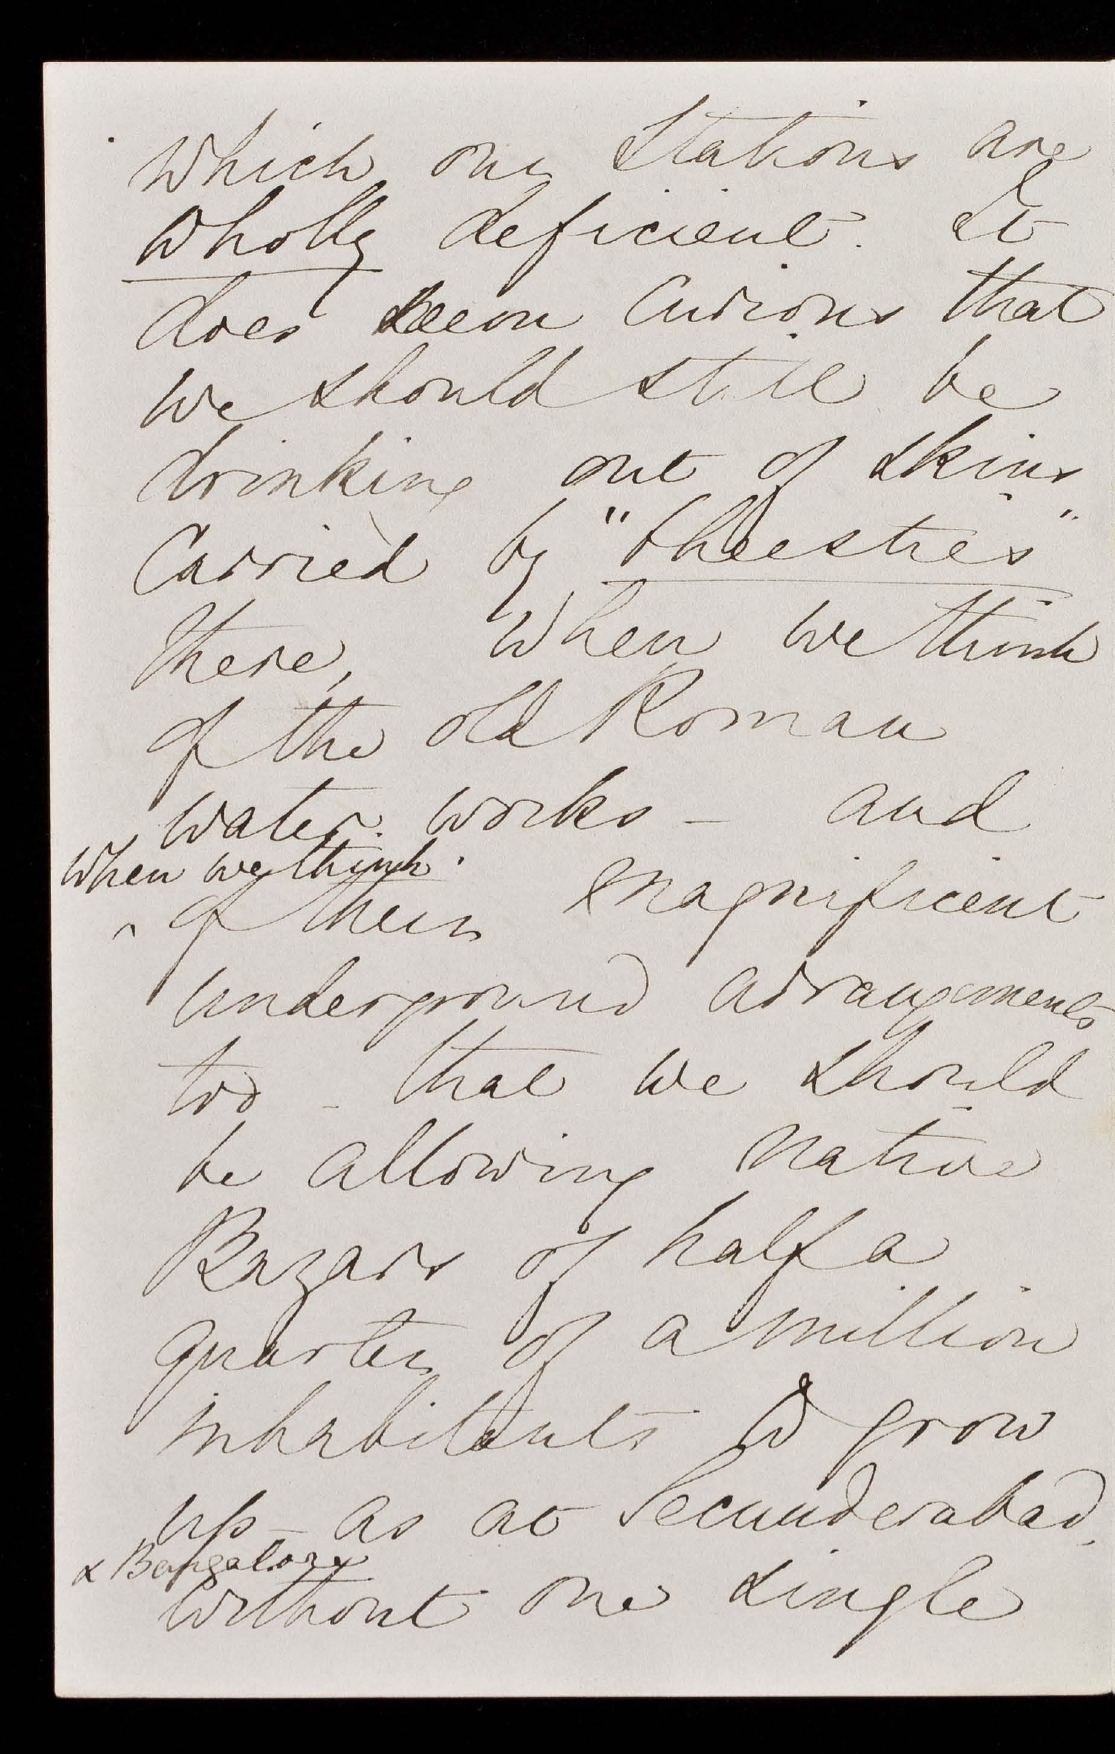 which our Stations are
wholly deficient. It
does seem curious that
we should still be
drinking out of skins
carried by "bheesties"
there, When we think
of the old Roman
water works - and
when we think
of their magnificent
underground arrangements
too - that we should
be allowing native
Bazars of half a
quarter of a million
inhabitants to grow
up - as at Secunderabad
& Bangalore
without one single